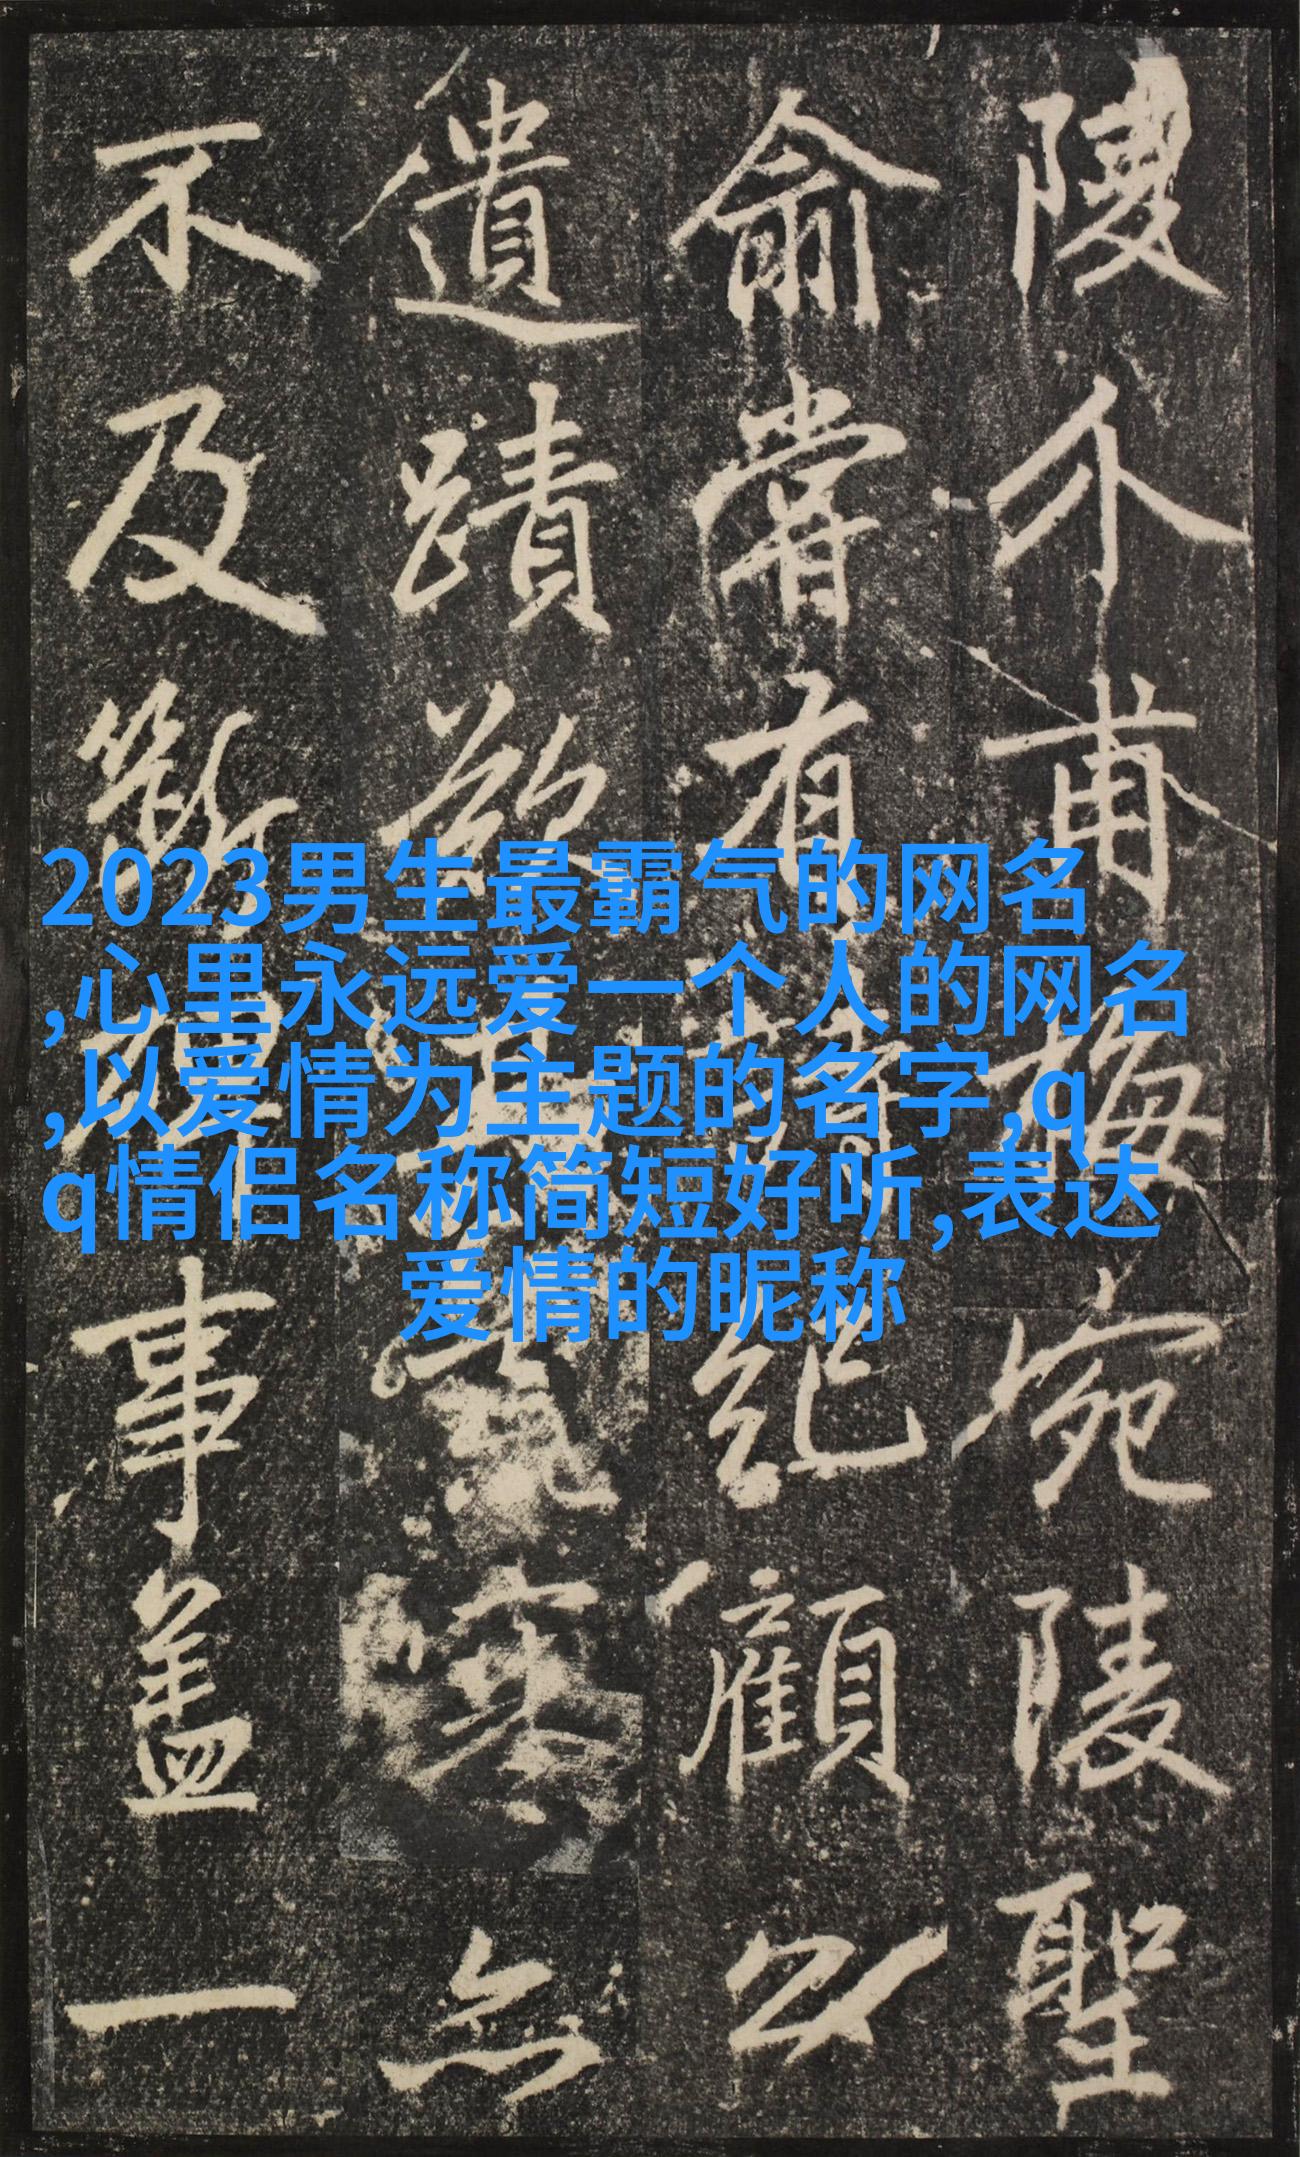 陵介甫梅宛陵聖
俞嘗有詩紀顧以
遺蹟欲
不及斷事蓋一
2023男生最霸气的网名
,心里永远爱一个人的网名
,以爱情为主题的名字,q
q情侣名称简短好听,表达
爱情的昵称